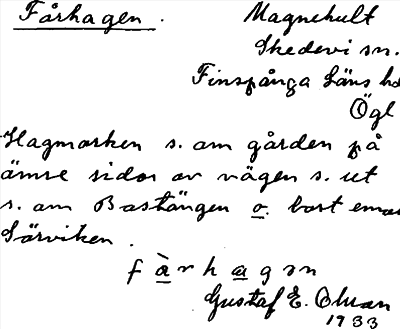 Fårhagen. Magnehult
Skedevi sn.
Finspånga Läns hd
Ögl
Hagmarken s. om gården på
ömse sidor av vägen s. ut
s. om Bastängen o. bort emot
Lärviken.
f à r h a g ə n
Gustaf E. Ohman
1933